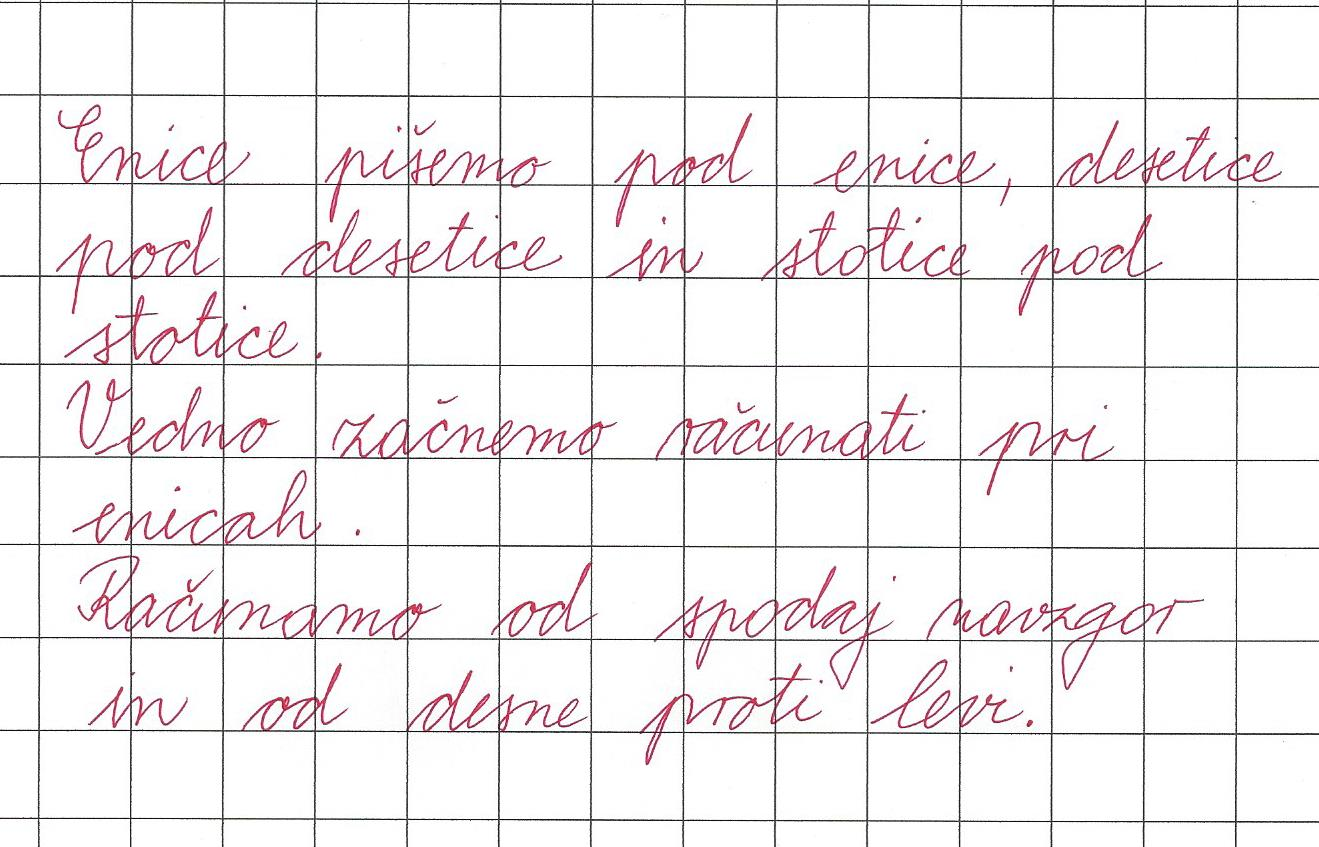 Enice pišemo pod enice, desetice
pod desetice in stotice pod
stotice.
Vedno začnemo računati pri
enicah.
Računamo od spodaj navzgor
in od desne proti levi.